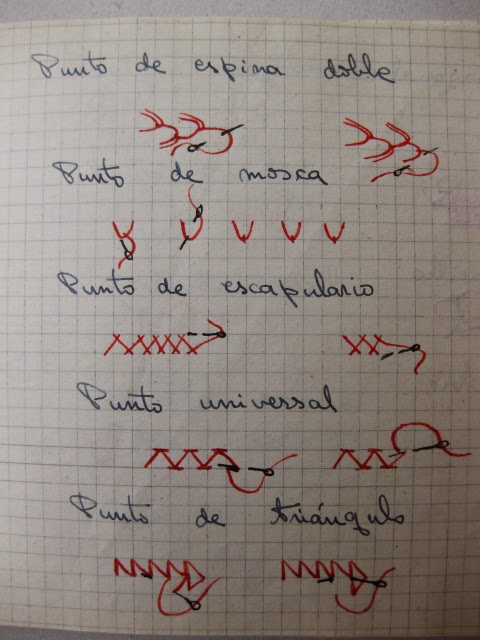 Punto de espina doble
Punto de mosca
Punto de escapulario
Punto universal
Punto de triángulo